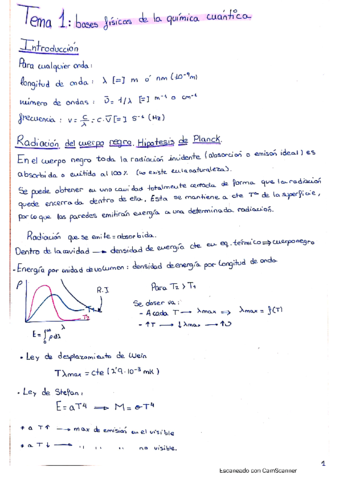 Tema 1: bases físicas de la química cuántica
Introducción
Para cualquier onda:
longitud de onda: λ [=] m ó nm (10⁻⁹m)
número de ondas: ῡ = 1/λ [=] m⁻¹ o cm⁻¹
frecuencia: ν = c/λ = c·ῡ [=] s⁻¹ (Hz)
Radiación del cuerpo negro. Hipótesis de Planck.
En el cuerpo negro toda la radiación incidente (absorción o emisión ideal) es
absorbida o emitida al 100% (no existe en la naturaleza).
Se puede obtener en una cavidad totalmente cerrada de forma que la radiación
quede encerrada dentro de ella. Esta se mantiene a cte Tª de la superficie,
por lo que las paredes emitirán energía a una determinada radiación.
Radiación que se emite = absorbida.
Dentro de la cavidad → densidad de energía cte en eq. térmico ⇒ cuerpo negro
- Energía por unidad de volumen: densidad de energía por longitud de onda
ρ
R-J
T₂
T₁
λ
E = ∫₀^∞ ρ dλ
Para T₂ > T₁
Se observa:
- A cada T → λmax ⇒ λmax = f(T)
- ↑T → ↓λmax → ↑ν
• Ley de desplazamiento de Wein
Tλmax = cte (2'9·10⁻³ mK)
• Ley de Stefan:
E = aT⁴ → M = σT⁴
* a T↑ → max de emisión en el visible
* a T↓ → " " " no visible.
1
Escaneado con CamScanner